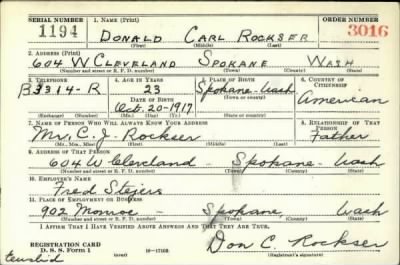 SERIAL NUMBER 1. NAME (Print) ORDER NUMBER
1194 DONALD CARL ROCKSER 3016
(First) (Middle) (Last)
2. ADDRESS (Print)
604 W CLEVELAND SPOKANE WASH
(Number and street or R. F. D. number) (Town) (County) (State)
3. TELEPHONE 4. AGE IN YEARS 5. PLACE OF BIRTH 6. COUNTRY OF CITIZENSHIP
B3314-R 23 Spokane-Wash American
DATE OF BIRTH (Town or county)
Oct. 20-1917
(Exchange) (Number) (Mo.) (Day) (Yr.) (State or country)
7. NAME OF PERSON WHO WILL ALWAYS KNOW YOUR ADDRESS 8. RELATIONSHIP OF THAT PERSON
Mr. C. J. Rockser Father
(Mr., Mrs., Miss) (First) (Middle) (Last)
9. ADDRESS OF THAT PERSON
604 W Cleveland - Spokane - Wash
(Number and street or R. F. D. number) (Town) (County) (State)
10. EMPLOYER'S NAME
Fred
11. PLACE OF EMPLOYMENT OR BUSINESS
902 Monroe - Spokane Wash
(Number and street or R. F. D. number) (Town) (County) (State)
I AFFIRM THAT I HAVE VERIFIED ABOVE ANSWERS AND THAT THEY ARE TRUE.
REGISTRATION CARD
D. S. S. Form 1 Don C. Rockser
(over) (Registrant's signature)